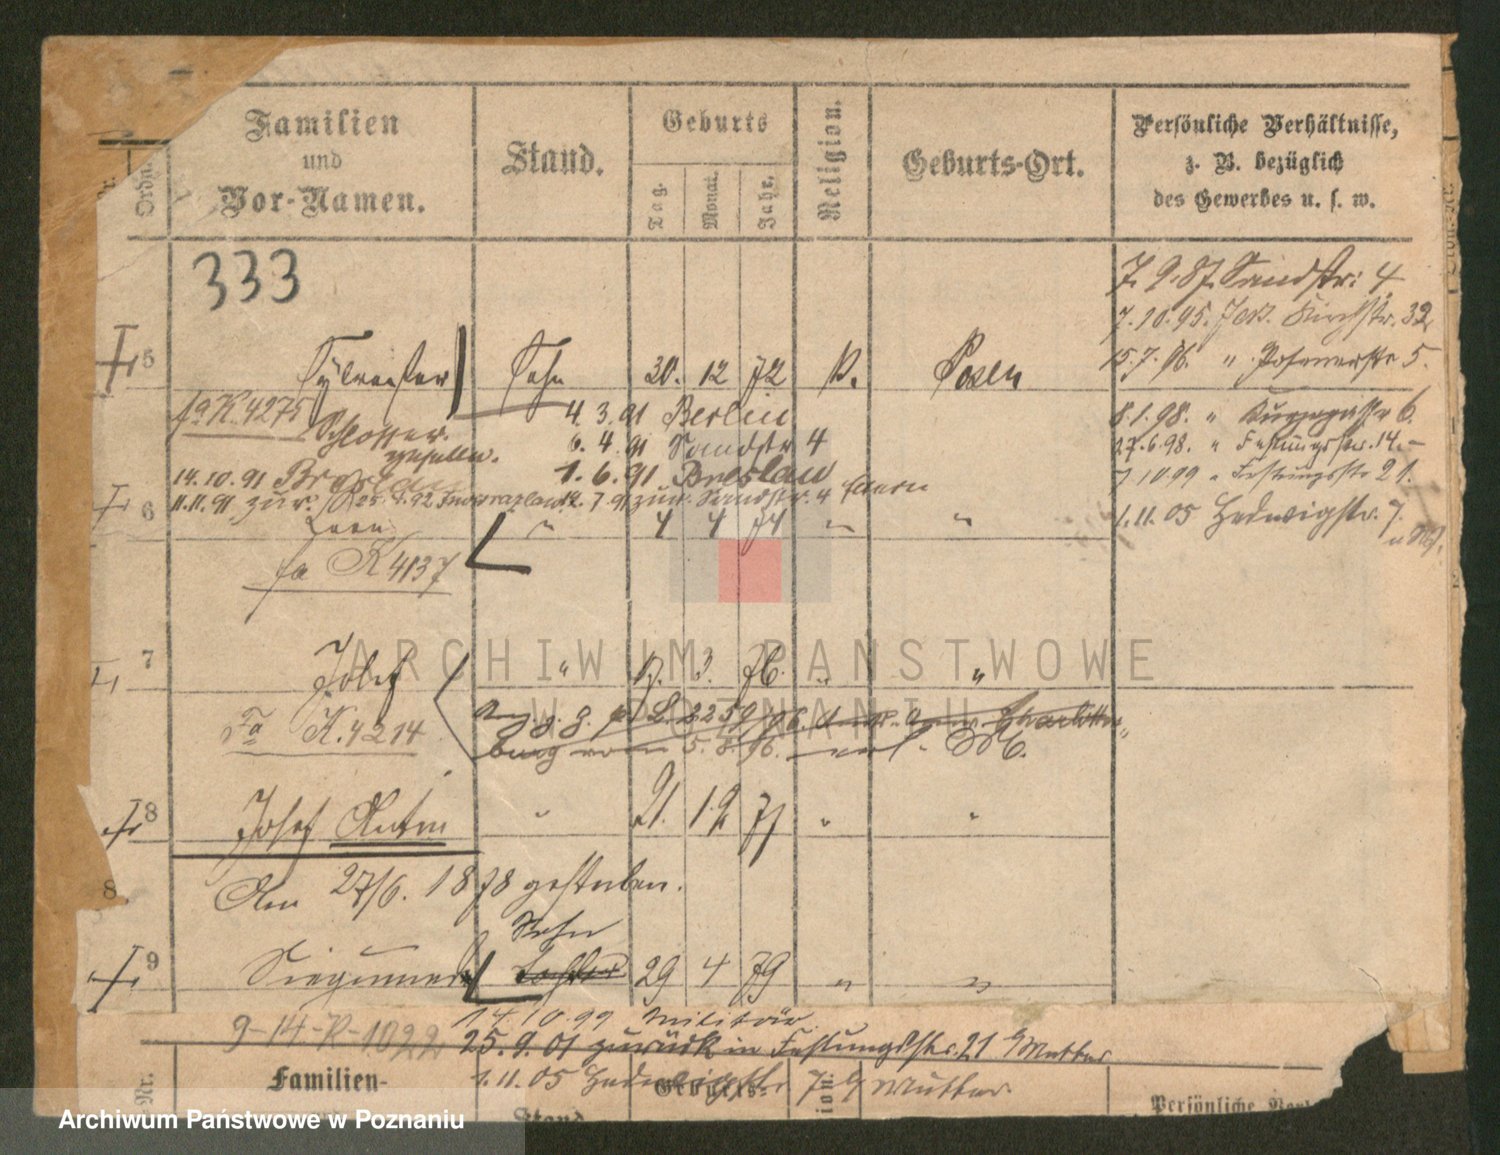 Familien
und
Vor-Namen.
Stand.
Geburts
Tag.
Monat.
Jahr.
Religion.
Geburts-Ort.
Persönliche Verhältnisse,
z. B. bezüglich
des Gewerbes u. s. w.
Ordn.
333
7. 9. 87. Sandstr: 4
7. 10. 95. Jers. Kirchstr. 32
15. 7. 96. " Posenerstr 5.
5 Sylvester Sohn 30. 12 72 k. Posen
fa K. 4275
Schlosser
gesellen.
4. 3. 91 Berlin
6. 4. 91 Sandstr 4
1. 6. 91 Breslau
8. 1. 98. " 6.
27. 6. 98. " Festungsstr. 14.
7 10 99 " Festungsstr 21.
1. 11. 05 Hedwigstr. 7.
14. 10. 91 Breslau
11. 11. 91 zur. 25. 4. 92 Inowrazlaw 12. 7. 91 zur. Sandstr. 4 Eltern
6 Leon " 4 4 74 " "
fa K 4137
7 Josef " 3. 76. " "
Fa K. 4214
5. 8. 96.
8 Josef Anton " 21. 12 77 " "
Am 27/6. 1878 gestorben.
8.
Sohn
9 Siegismund Tochter 29 4 79 " "
9-14-P-1022
14. 10. 99 Militär.
25. 9. 01 zurück in Festungsstr. 21 b/Mutter
1. 11. 05 Hedwigstr 7 b/ Mutter.
Nr.
Familien-
Stand
Geburts-
Persönliche
ARCHIWUM PAŃSTWOWE
W POZNANIU
Archiwum Państwowe w Poznaniu